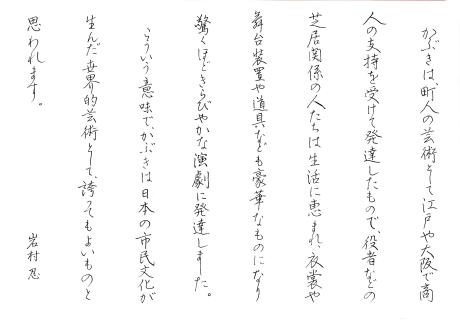 かぶきは、町人の芸術として江戸や大阪で商
人の支持を受けて発達したもので、役者などの
芝居関係の人たちは生活に恵まれ、衣裳や
舞台装置や道具なども豪華なものになり
驚くほどきらびやかな演劇に発達しました。
こういう意味で、かぶきは日本の市民文化が
生んだ世界的芸術として、誇ってもよいものと
思われます。
岩村忍